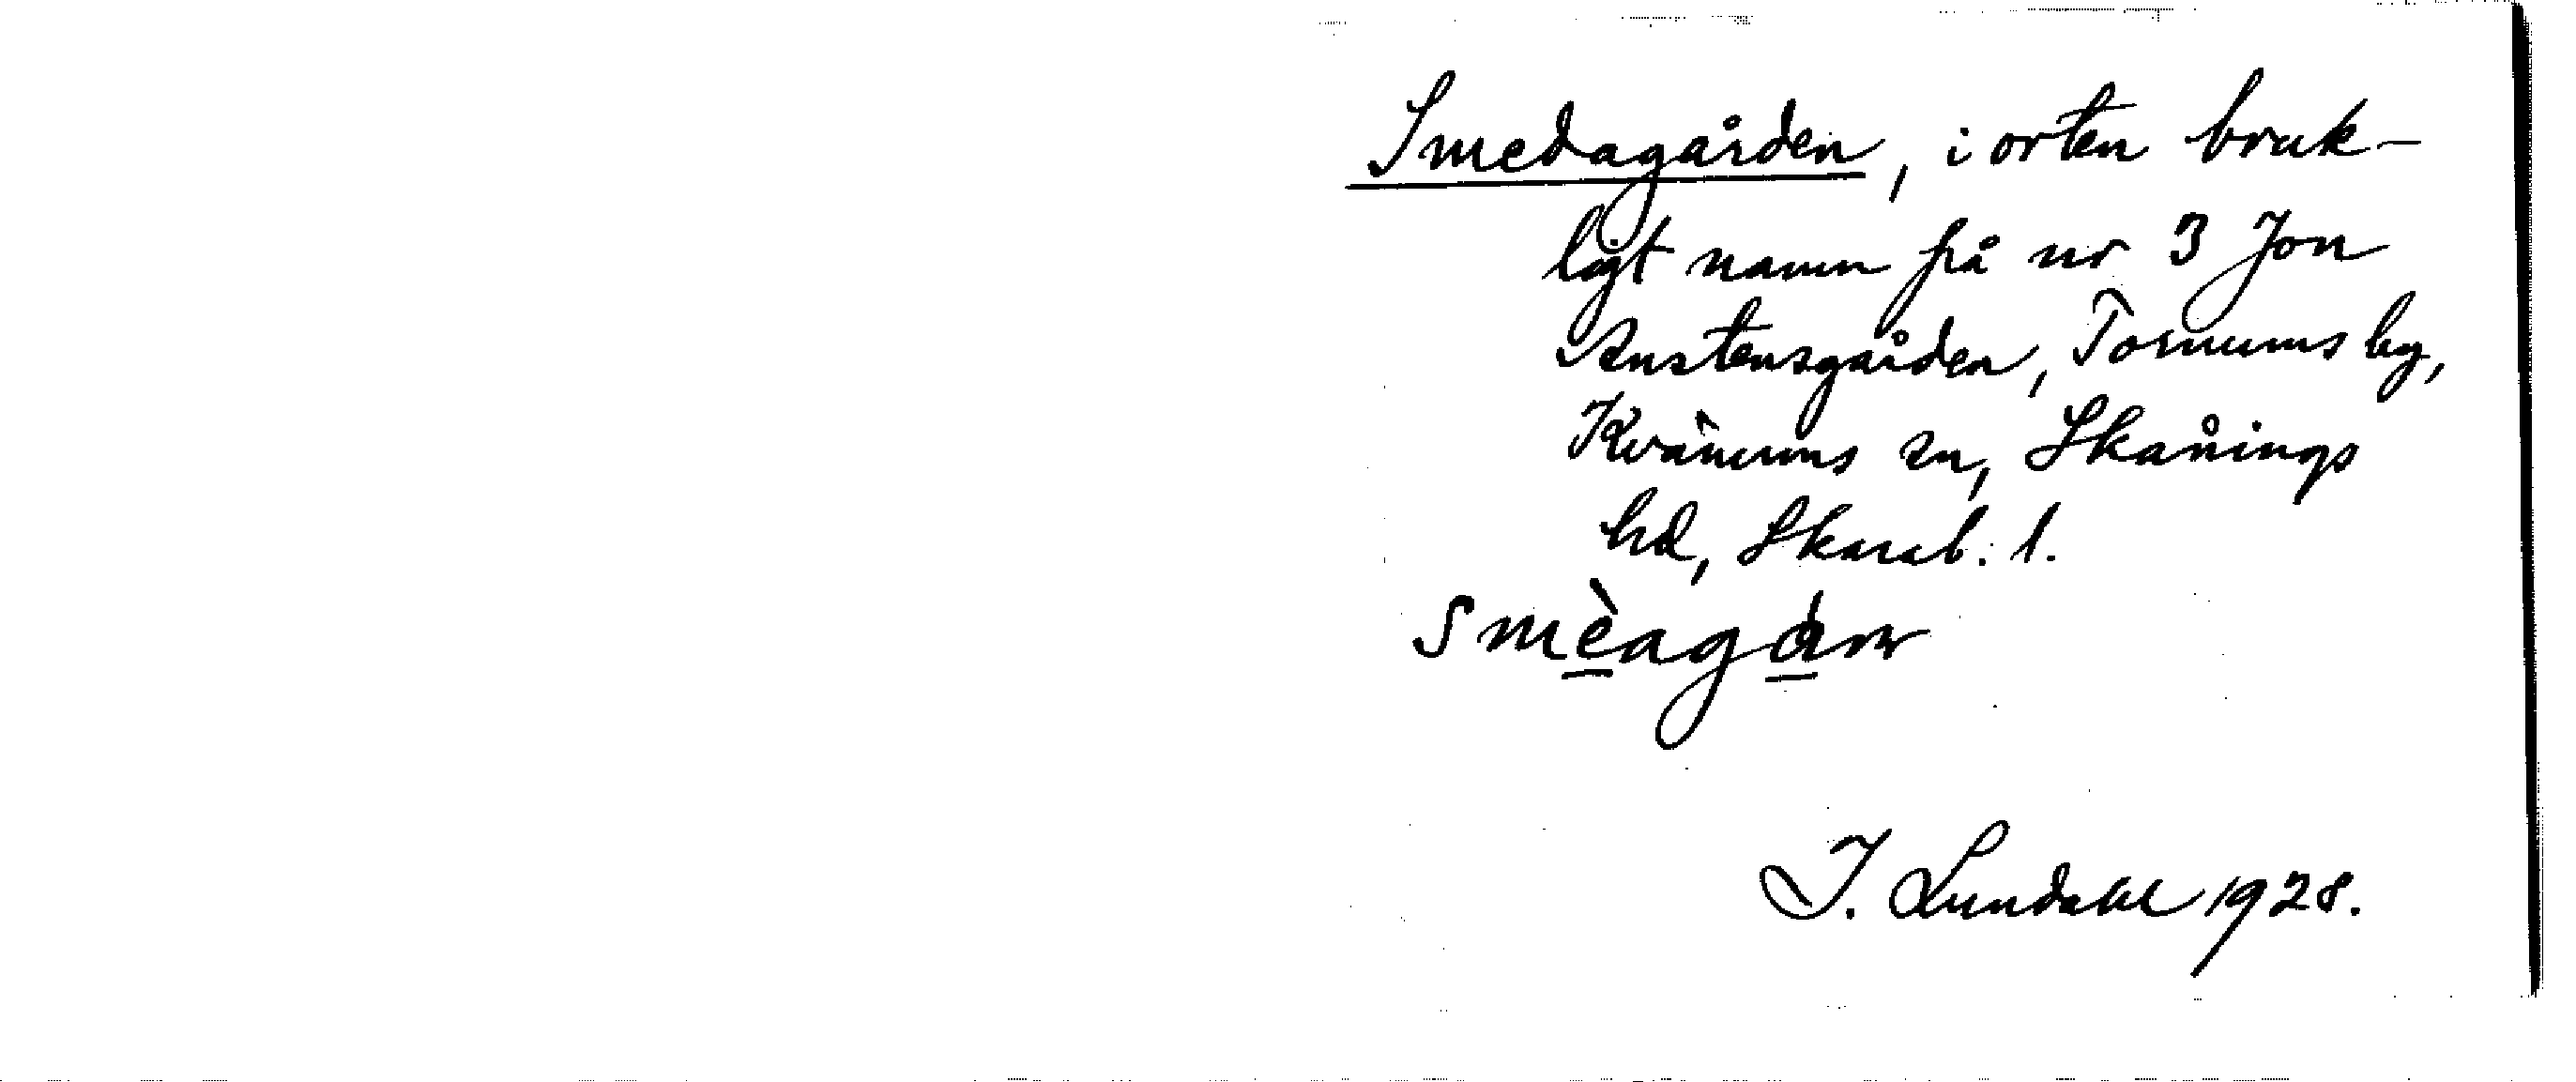 Smedagården, i orten bruk-
ligt namn på nr 3 Jon
Anstensgården, Tornums by,
Kvänums sn, Skånings
hd, Skarab. l.
Smèagàrn
I. Lundahl 1928.